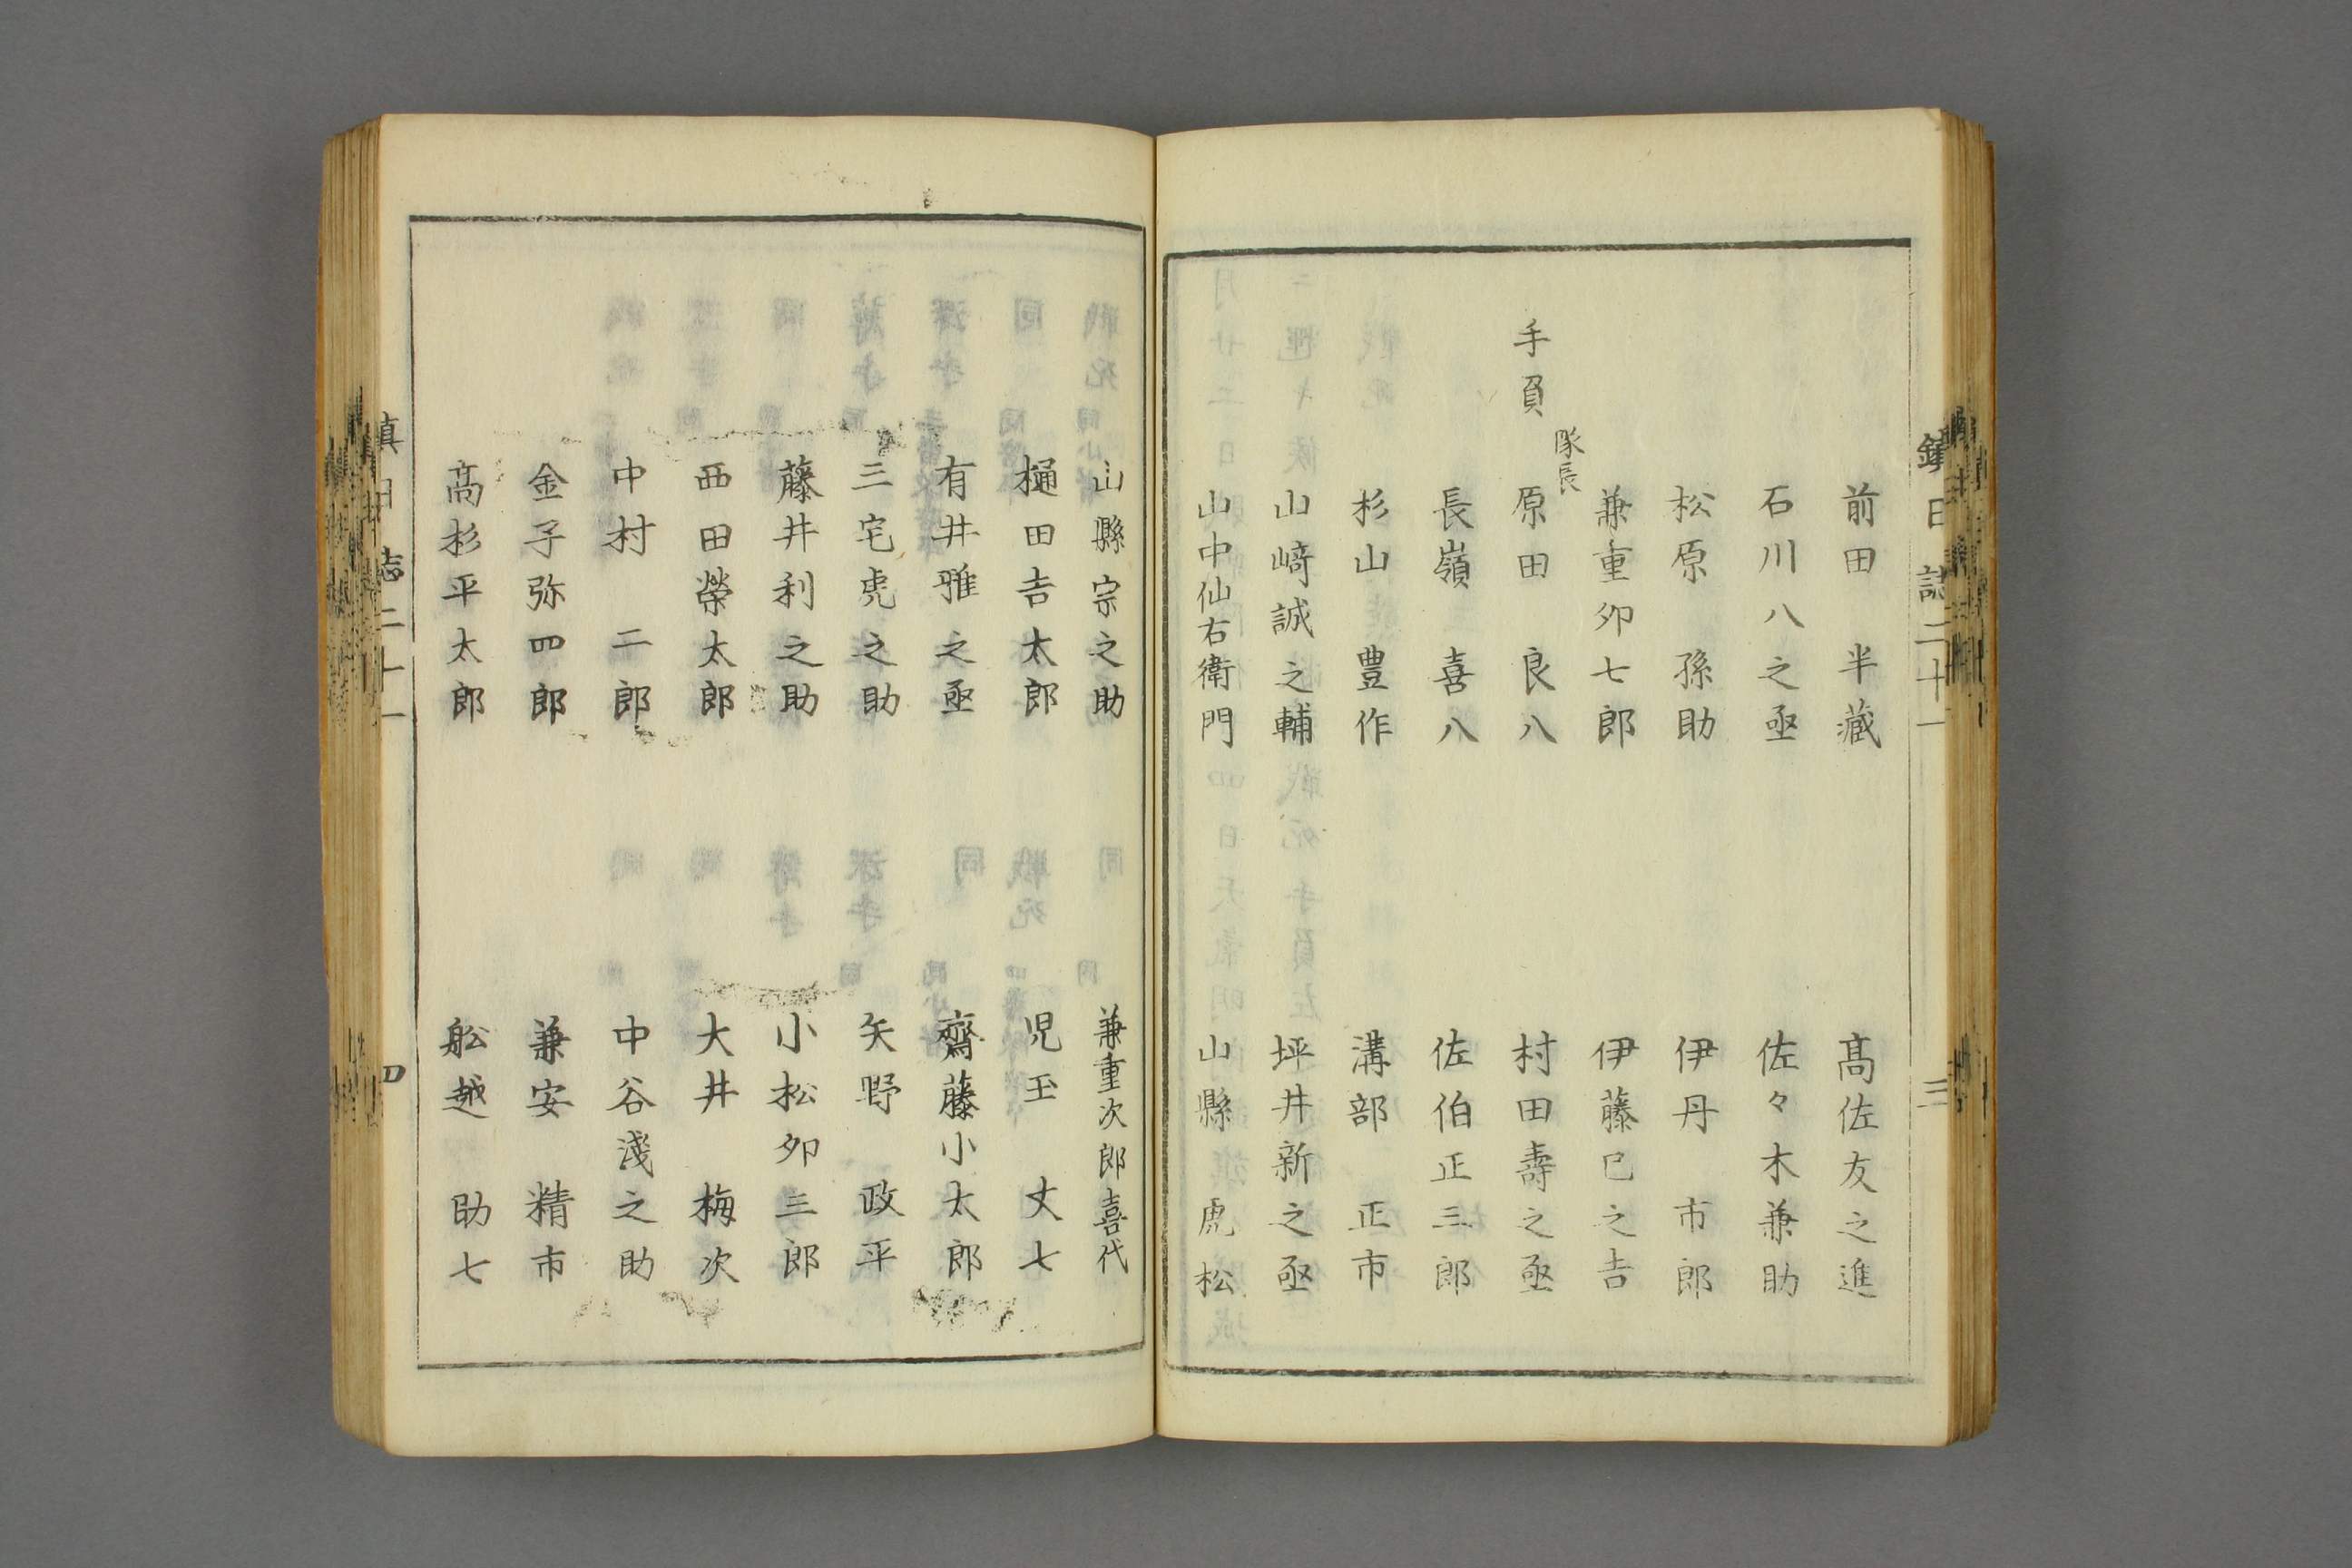 鎮日誌二十一 三
前田半藏 高佐友之進
石川八之亟 佐々木兼助
松原孫助 伊丹市郎
兼重夘七郎 伊藤巳之吉
手負 隊長 原田良八 村田壽之亟
長嶺喜八 佐伯正三郎
杉山豊作 溝部正市
山﨑誠之輔 坪井新之亟
山中仙右衛門 山縣虎松
山縣宗之助 兼重次郎喜代
樋田吉太郎 児玉丈七
有井雅之亟 齋藤小太郎
三宅虎之助 矢野政平
藤井利之助 小松夘三郎
西田榮太郎 大井梅次
中村二郎 中谷淺之助
金子弥四郎 兼安精市
髙杉平太郎 舩越助七
日志二十一 四